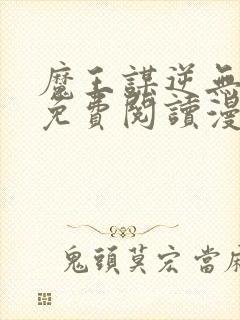 魔王謀逆無
免費閱讀漫
鬼頭莫宏當麻